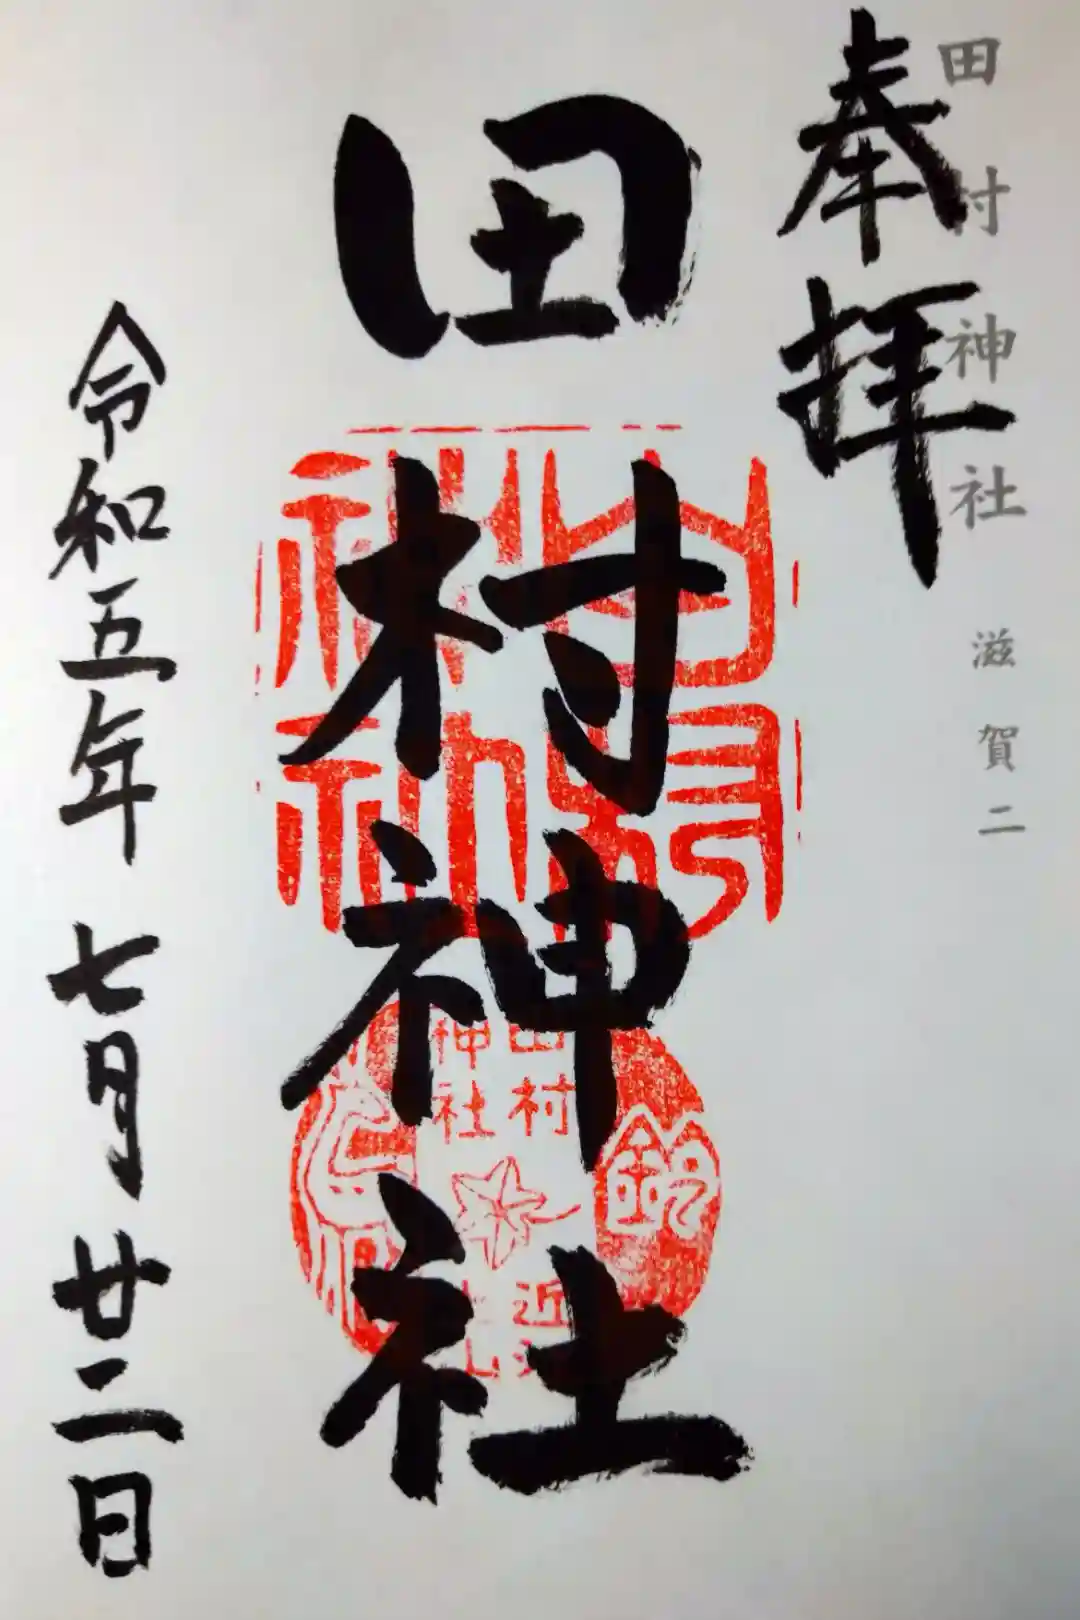 田村神社 滋賀二
奉拝
田村神社
令和五年 七月 廿二日
田村
神社
鈴
近江
土山